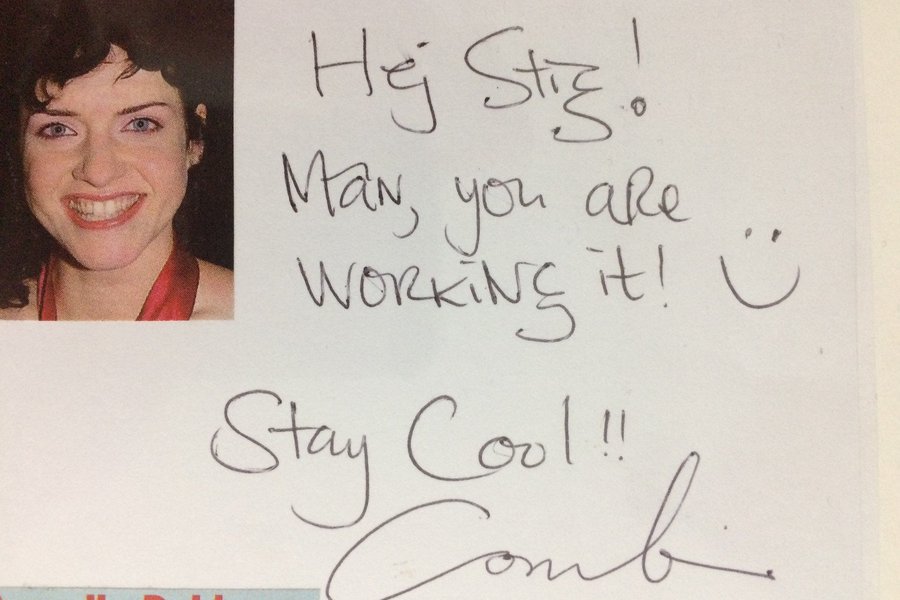 Hej Stig!
Man, you are
working it! :)
Stay Cool!!